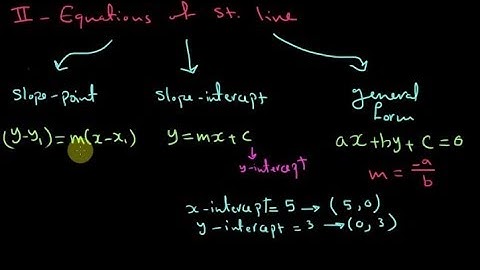 II - Equations of st. line
slope-point
slope-intercept
general
form
(y-y₁) = m(x-x₁)
y = mx + c
ax + by + c = 0
y-intercept
m = -a/b
x-intercept = 5 → (5, 0)
y-intercept = 3 → (0, 3)